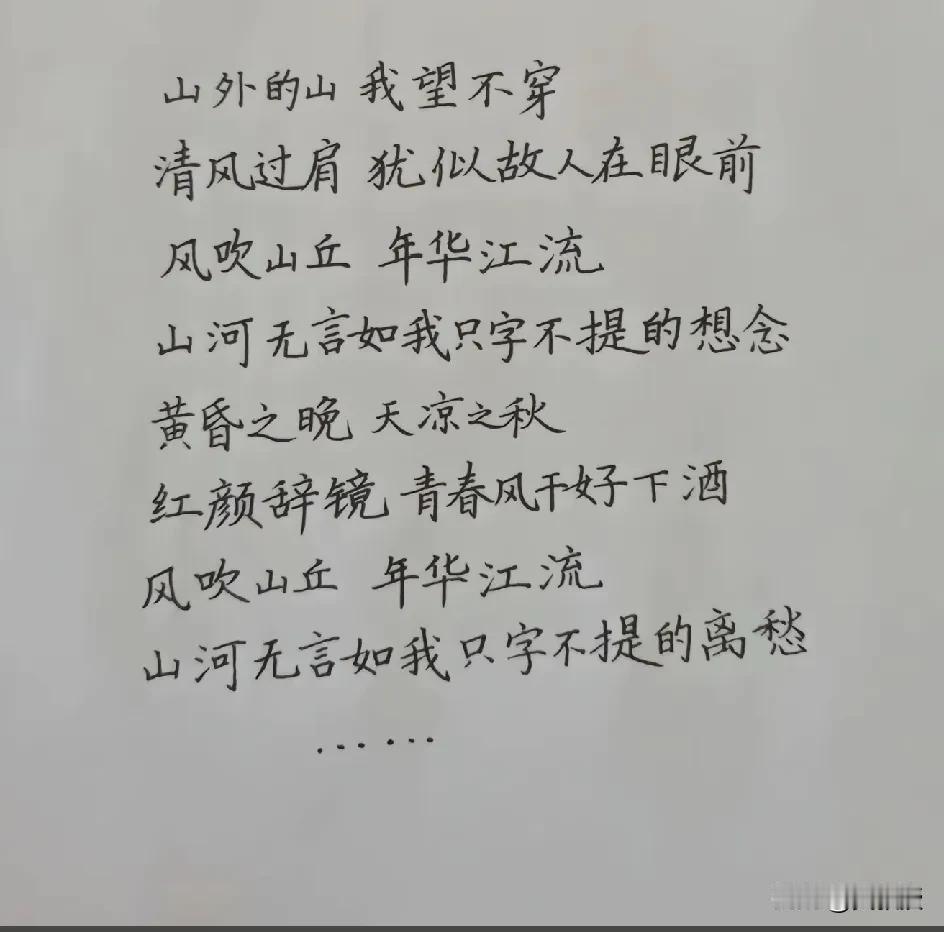 山外的山 我望不穿
清风过肩 犹似故人在眼前
风吹山丘 年华江流
山河无言如我只字不提的想念
黄昏之晚 天凉之秋
红颜辞镜 青春风干好下酒
风吹山丘 年华江流
山河无言如我只字不提的离愁
……